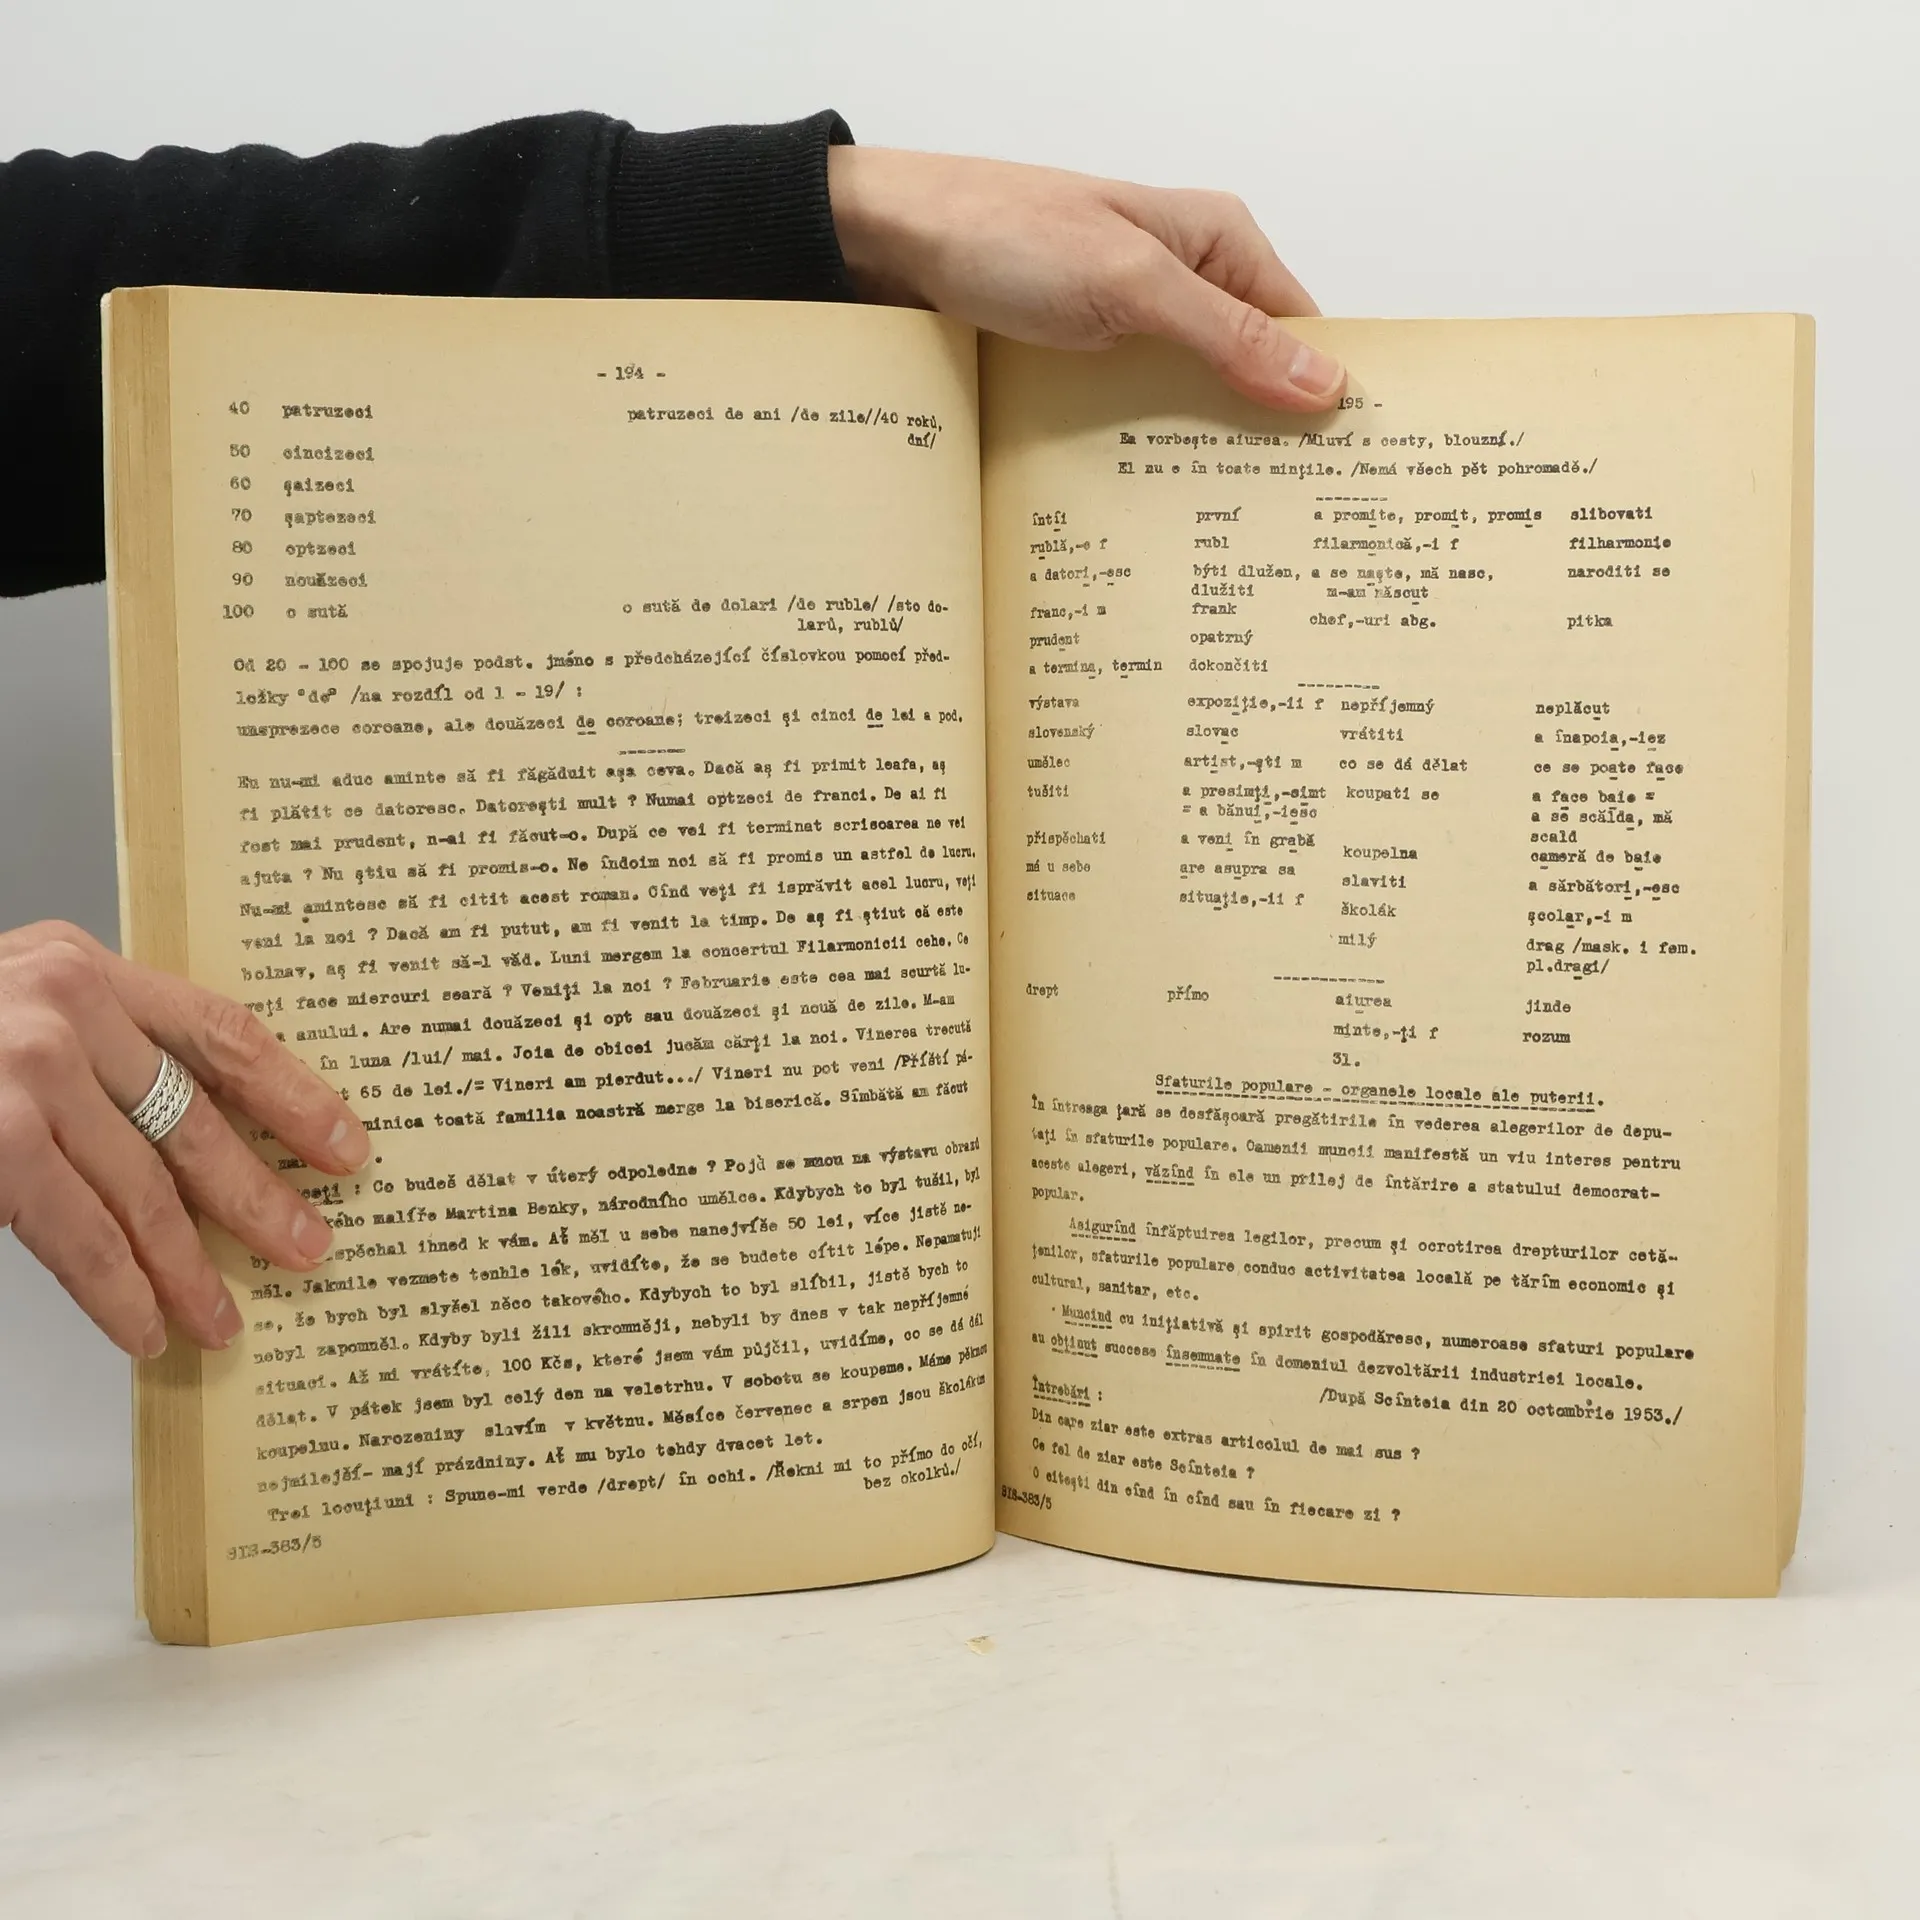 - 194 -
40 patruzeci patruzeci de ani /de zile//40 roků,
dní/
50 cincizeci
60 şaizeci
70 şaptezeci
80 optzeci
90 nouăzeci
100 o sută o sută de dolari /de ruble/ /sto do-
larů, rublů/
Od 20 - 100 se spojuje podst. jméno s předcházející číslovkou pomocí před-
ložky "de" /na rozdíl od 1 - 19/ :
unsprezece coroane, ale douăzeci de coroane; treizeci şi cinci de lei a pod.
Eu nu-mi aduc aminte să fi făgăduit aşa ceva. Dacă aş fi primit leafa, aş
fi plătit ce datoresc. Datoreşti mult ? Numai optzeci de franci. De ai fi
fost mai prudent, n-ai fi făcut-o. După ce vei fi terminat scrisoarea ne vei
ajuta ? Nu ştiu să fi promis-o. Ne îndoim noi să fi promis un astfel de lucru.
Nu-mi amintesc să fi citit acest roman. Cînd veţi fi isprăvit acel lucru, veţi
veni la noi ? Dacă am fi putut, am fi venit la timp. De aş fi ştiut că este
bolnav, aş fi venit să-l văd. Luni mergem la concertul Filarmonicii cehe. Ce
veţi face miercuri seară ? Veniţi la noi ? Februarie este cea mai scurtă lu-
anului. Are numai douăzeci şi opt sau douăzeci şi nouă de zile. M-am
în luna /lui/ mai. Joia de obicei jucăm cărţi la noi. Vinerea trecută
65 de lei./= Vineri am pierdut.../ Vineri nu pot veni /Příští pá-
toată familia noastră merge la biserică. Sîmbătă am făcut
: Co budeš dělat v úterý odpoledne ? Pojď se mnou na výstavu obrazů
malíře Martina Benky, národního umělce. Kdybych to byl tušil, byl
ihned k vám. Ať měl u sebe nanejvíše 50 lei, více jistě ne-
měl. Jakmile vezmete tenhle lék, uvidíte, že se budete cítit lépe. Nepamatuji
se, že bych byl slyšel něco takového. Kdybych to byl slíbil, jistě bych to
nebyl zapomněl. Kdyby byli žili skromněji, nebyli by dnes v tak nepříjemné
situaci. Až mi vrátíte, 100 Kčs, které jsem vám půjčil, uvidíme, co se dá dál
dělat. V pátek jsem byl celý den na veletrhu. V sobotu se koupeme. Máme pěknou
koupelnu. Narozeniny slavím v květnu. Měsíce červenec a srpen jsou školákům
nejmilejší- mají prázdniny. Ať mu bylo tehdy dvacet let.
Trei locuţiuni : Spune-mi verde /drept/ în ochi. /Řekni mi to přímo do očí,
bez okolků./
SIS-383/5
195 -
Ea vorbeşte aiurea. /Mluví s cesty, blouzní./
El nu e în toate minţile. /Nemá všech pět pohromadě./
întîi první a promite, promit, promis slibovati
rublă,-e f rubl filarmonică,-i f filharmonie
a datori,-esc býti dlužen, a se naşte, mă nasc, naroditi se
dlužiti m-am născut
franc,-i m frank chef,-uri abg. pitka
prudent opatrný
a termina, termin dokončiti
výstava expoziţie,-ii f nepříjemný neplăcut
slovenský slovac vrátiti a înapoia,-iez
umělec artist,-şti m co se dá dělat ce se poate face
tušiti a presimţi,-simt koupati se a face baie =
= a bănui,-iesc a se scălda, mă
scald
přispěchati a veni în grabă koupelna cameră de baie
má u sebe are asupra sa slaviti a sărbători,-esc
situace situaţie,-ii f školák şcolar,-i m
milý drag /mask. i fem.
pl.dragi/
drept přímo aiurea jinde
minte,-ţi f rozum
31.
Sfaturile populare - organele locale ale puterii.
În întreaga ţară se desfăşoară pregătirile în vederea alegerilor de depu-
taţi în sfaturile populare. Oamenii muncii manifestă un viu interes pentru
aceste alegeri, văzînd în ele un prilej de întărire a statului democrat-
popular.
Asigurînd înfăptuirea legilor, precum şi ocrotirea drepturilor cetă-
ţenilor, sfaturile populare conduc activitatea locală pe tărîm economic şi
cultural, sanitar, etc.
Muncind cu iniţiativă şi spirit gospodăresc, numeroase sfaturi populare
au obţinut succese însemnate în domeniul dezvoltării industriei locale.
/După Scînteia din 20 octombrie 1953./
Întrebări :
Din care ziar este extras articolul de mai sus ?
Ce fel de ziar este Scînteia ?
O citeşti din cînd în cînd sau în fiecare zi ?
SIS-383/5